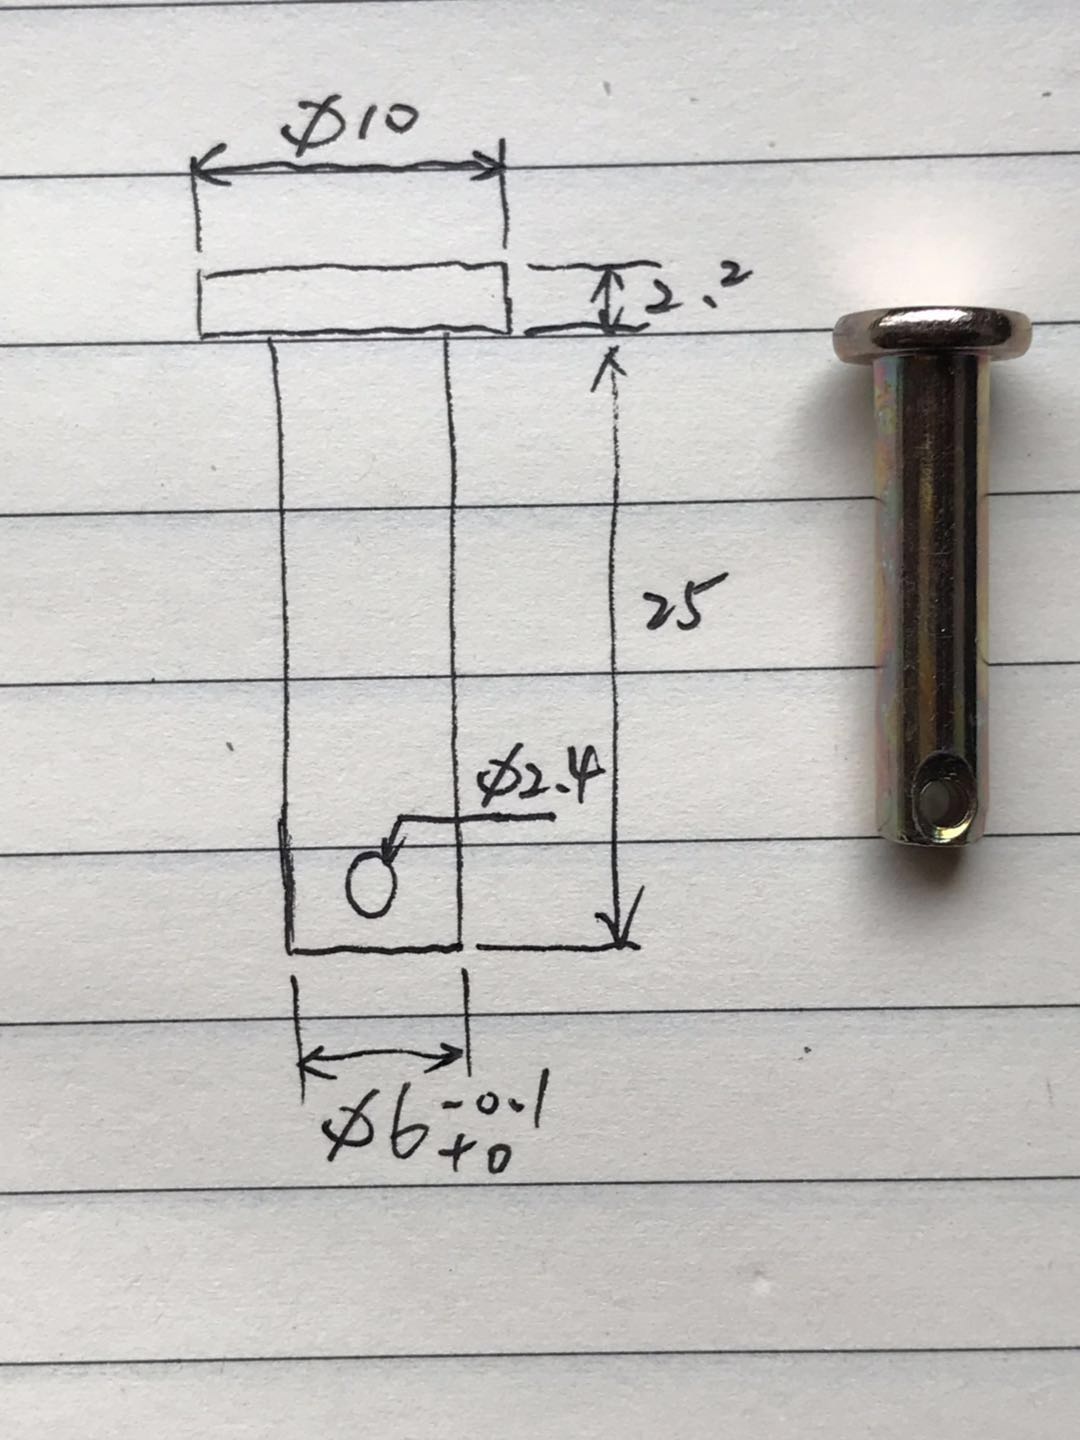 ø10
2.2
25
ø2.4
ø6 -0.1
+0